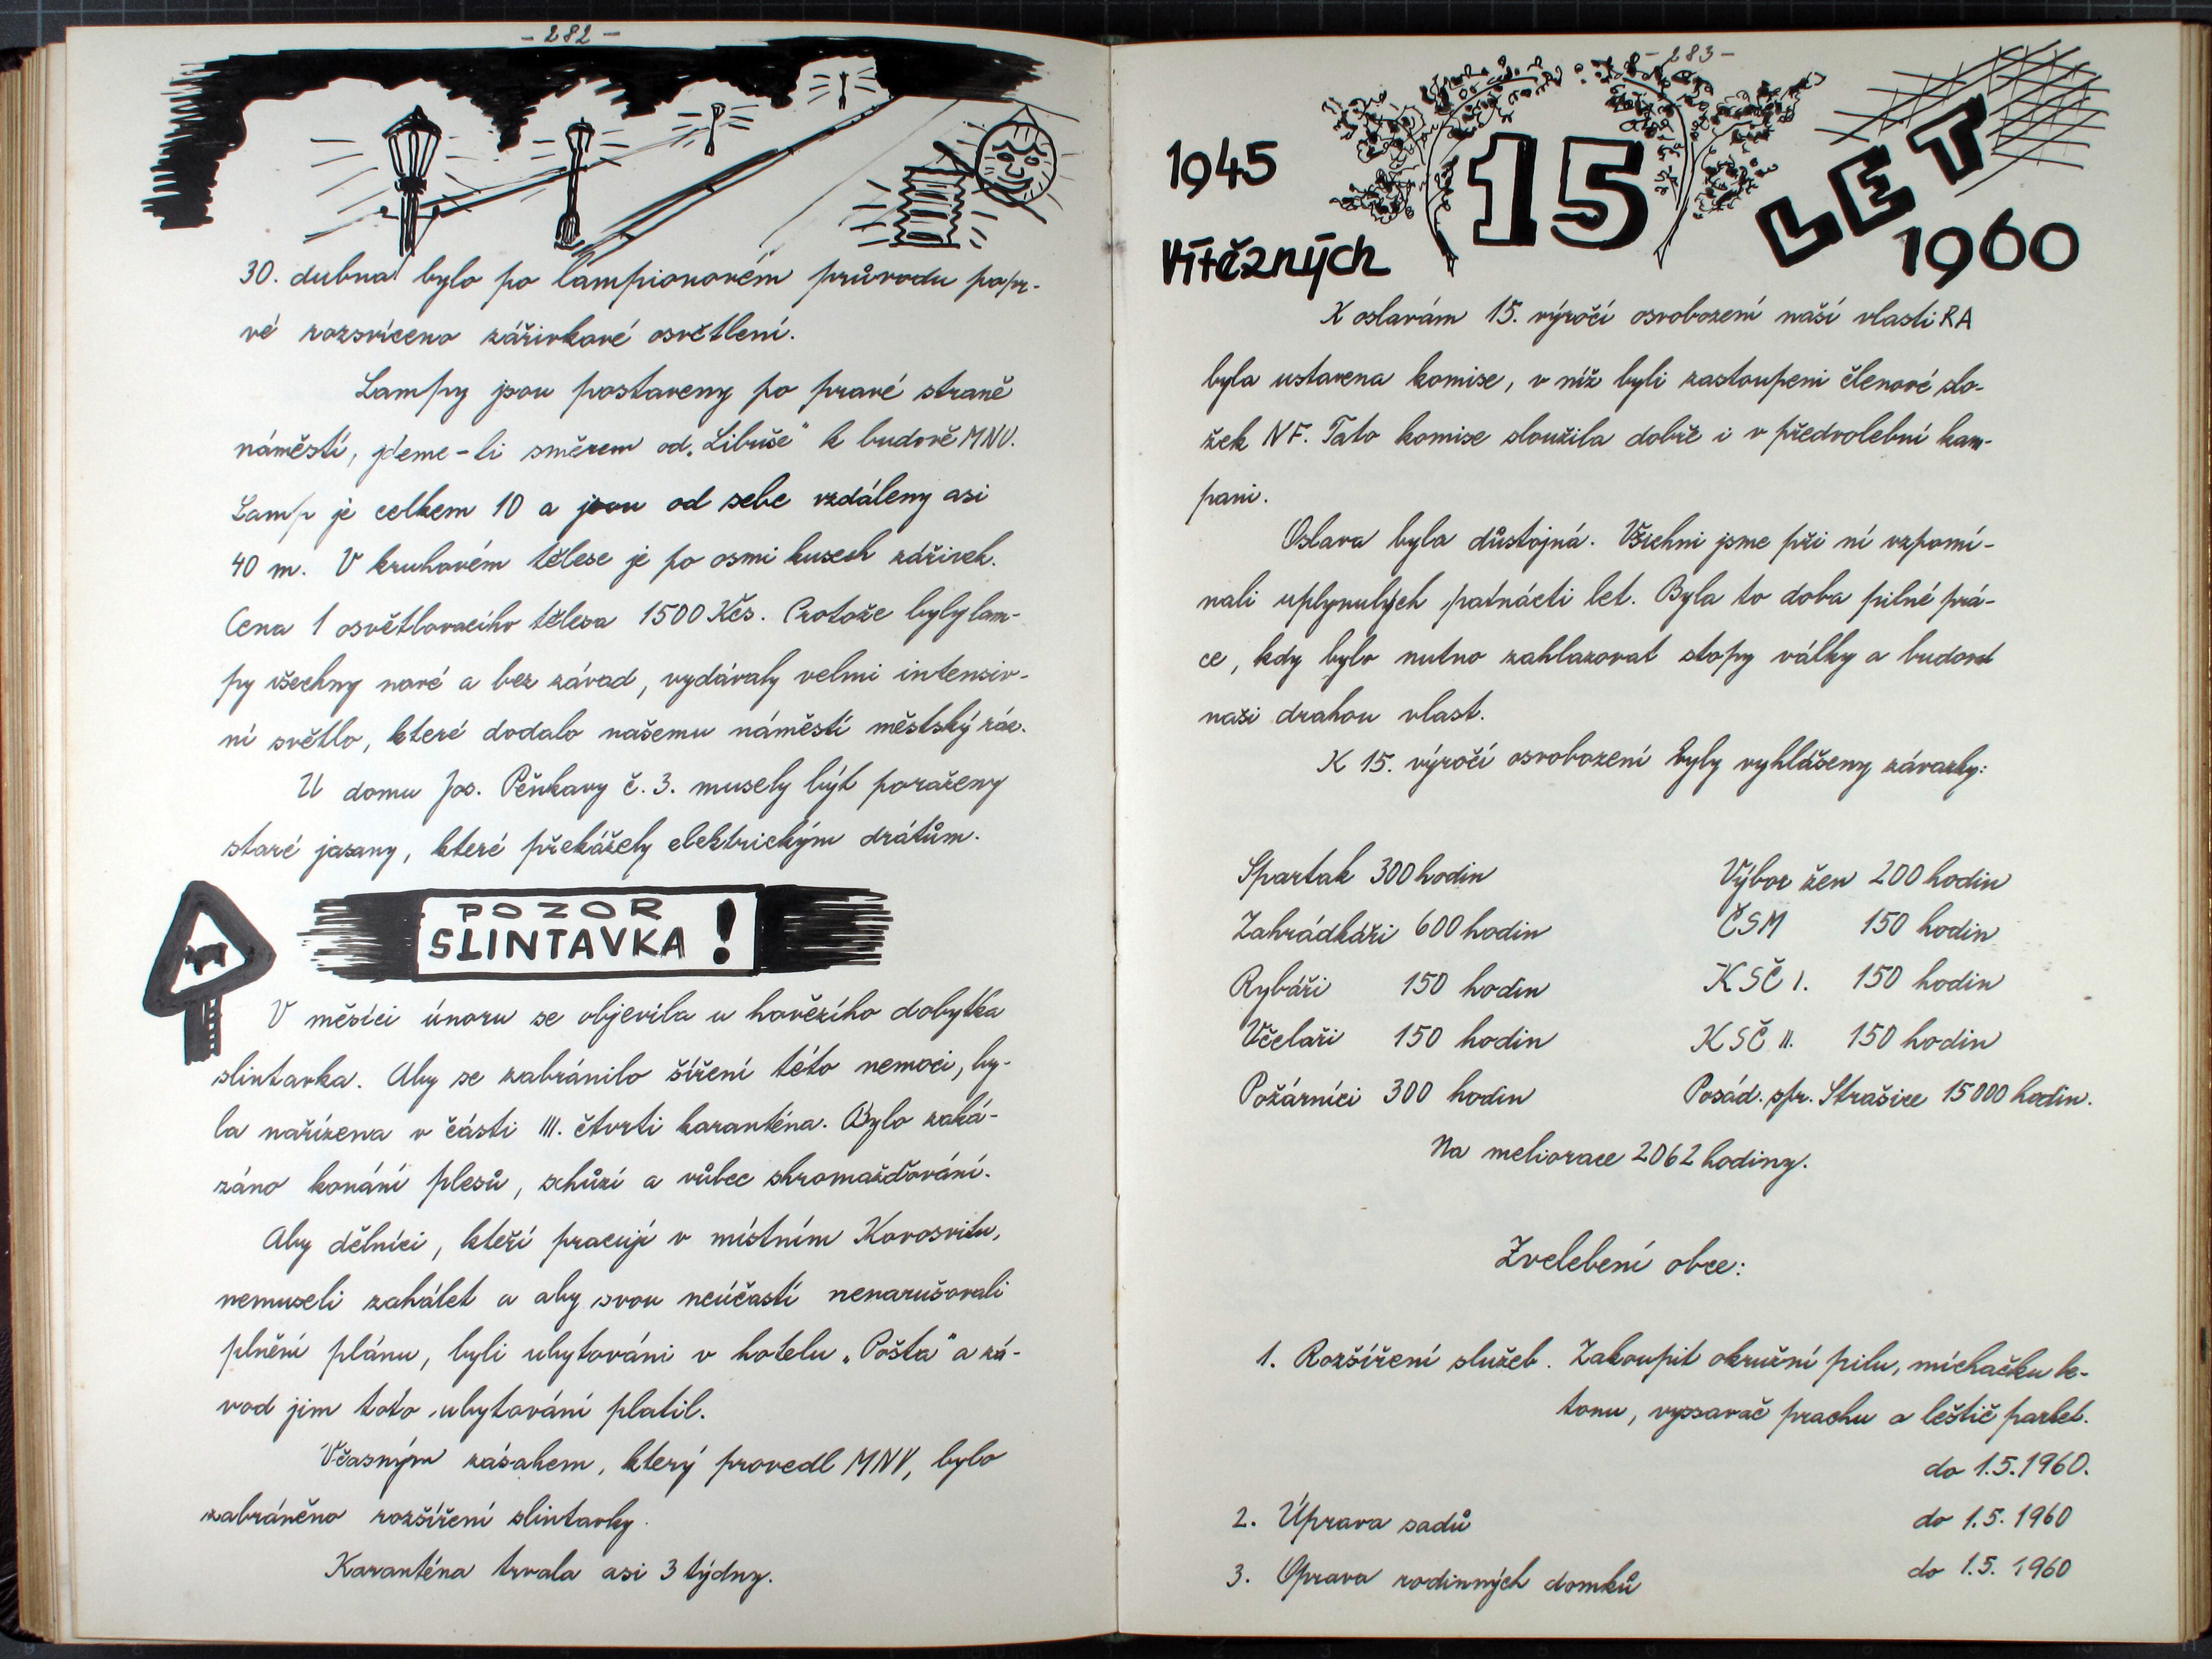 - 282 -
30. dubna bylo po lampionovém průvodu popr-
vé rozsvíceno zářivkové osvětlení.
Lampy jsou postaveny po pravé straně
náměstí, jdeme-li směrem od „Libuše" k budově MNV.
Lamp je celkem 10 a jsou od sebe vzdáleny asi
40 m. V kruhovém tělese je po osmi kusech zářivek.
Cena 1 osvětlovacího tělesa 1500 Kčs. Protože byly lam-
py všechny nové a bez závad, vydávaly velmi intensiv-
ní světlo, které dodalo našemu náměstí městský ráz.
U domu Jos. Pěnkavy č. 3. musely být poraženy
staré jasany, které překážely elektrickým drátům.
POZOR
SLINTAVKA!
V měsíci únoru se objevila u hovězího dobytka
slintavka. Aby se zabránilo šíření této nemoci, by-
la nařízena v části III. čtvrti karanténa. Bylo zaká-
záno konání plesů, schůzí a vůbec shromažďování.
Aby dělníci, kteří pracují v místním Kovosvitu,
nemuseli zahálet a aby svou neúčastí nenarušovali
plnění plánu, byli ubytováni v hotelu „Pošta" a zá-
vod jim toto ubytování platil.
Včasným zásahem, který provedl MNV, bylo
zabráněno rozšíření slintavky.
Karanténa trvala asi 3 týdny.
- 283 -
1945
15 LET
Vítězných
1960
K oslavám 15. výročí osvobození naší vlasti RA
byla ustavena komise, v níž byli zastoupeni členové slo-
žek NF. Tato komise sloužila dobře i v předvolební kam-
pani.
Oslava byla důstojná. Všichni jsme při ní vzpomí-
nali uplynulých patnácti let. Byla to doba pilné prá-
ce, kdy bylo nutno zahlazovat stopy války a budovat
naši drahou vlast.
K 15. výročí osvobození byly vyhlášeny závazky:
Spartak 300 hodin Výbor žen 200 hodin
Zahrádkáři 600 hodin ČSM 150 hodin
Rybáři 150 hodin KSČ I. 150 hodin
Včelaři 150 hodin KSČ II. 150 hodin
Požárníci 300 hodin Posád. spr. Strašice 15000 hodin.
Na meliorace 2062 hodiny.
Zvelebení obce:
1. Rozšíření služeb. Zakoupit okružní pilu, míchačku be-
tonu, vyssavač prachu a leštič parket.
do 1.5.1960.
2. Úprava sadů do 1.5. 1960
3. Oprava rodinných domků do 1.5. 1960